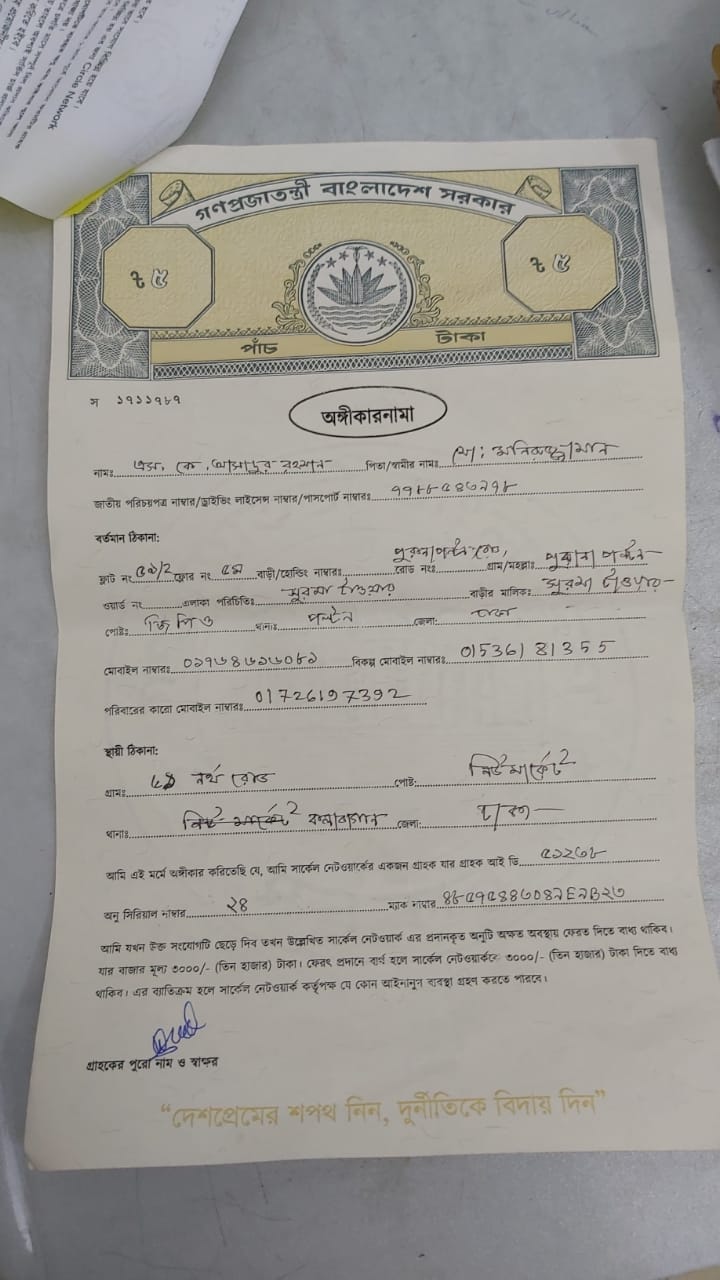 Circle Network
গণপ্রজাতন্ত্রী বাংলাদেশ সরকার
৳ ৫ ৳ ৫
পাঁচ টাকা
স ১৭১১৭৮৭
অঙ্গীকারনামা
নামঃ এস, কে, আসাদুর রহমান পিতা/স্বামীর নামঃ মো: মনিরুজ্জামান
জাতীয় পরিচয়পত্র নাম্বার/ড্রাইভিং লাইসেন্স নাম্বার/পাসপোর্ট নাম্বারঃ
বর্তমান ঠিকানা:
ফ্লাট নং ফ্লোর নং ৫ম বাড়ী/হোল্ডিং নাম্বারঃ পুরানা পল্টন রোড, রোড নংঃ গ্রাম/মহল্লাঃ পুরানা পল্টন
ওয়ার্ড নং এলাকা পরিচিতিঃ সুরমা টাওয়ার বাড়ীর মালিক: সুরমা টাওয়ার
পোষ্ট: জিপিও থানাঃ পল্টন জেলা: ঢাকা
মোবাইল নাম্বারঃ বিকল্প মোবাইল নাম্বারঃ 01536181355
পরিবারের কারো মোবাইল নাম্বারঃ 01726197392
স্থায়ী ঠিকানা:
গ্রামঃ নর্থ রোড পোষ্ট: নিউমার্কেট
থানাঃ নিউ মার্কেট কলাবাগান জেলা: ঢাকা
আমি এই মর্মে অঙ্গীকার করিতেছি যে, আমি সার্কেল নেটওয়ার্কের একজন গ্রাহক যার গ্রাহক আই ডি
অনু সিরিয়াল নাম্বার ২৪ ম্যাক নাম্বার
আমি যখন উক্ত সংযোগটি ছেড়ে দিব তখন উল্লেখিত সার্কেল নেটওয়ার্ক এর প্রদানকৃত অনুটি অক্ষত অবস্থায় ফেরত দিতে বাধ্য থাকিব।
যার বাজার মূল্য ৩০০০/- (তিন হাজার) টাকা। ফেরৎ প্রদানে ব্যর্থ হলে সার্কেল নেটওয়ার্ককে ৩০০০/- (তিন হাজার) টাকা দিতে বাধ্য
থাকিব। এর ব্যতিক্রম হলে সার্কেল নেটওয়ার্ক কর্তৃপক্ষ যে কোন আইনানুন ব্যবস্থা গ্রহণ করতে পারবে।
গ্রাহকের পুরো নাম ও স্বাক্ষর
“দেশপ্রেমের শপথ নিন, দুর্নীতিকে বিদায় দিন”